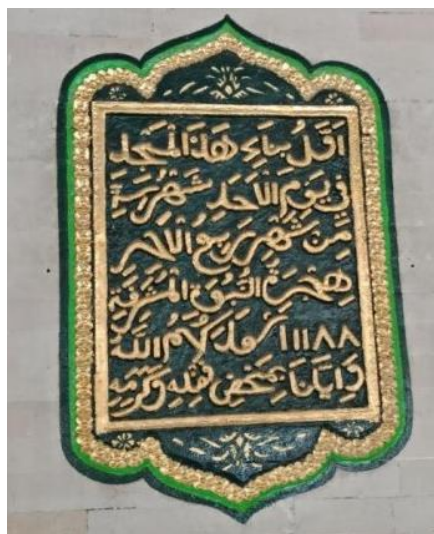 اَوَّلُ بِنَاءِ هَذَا الْمَسْجِدِ
فِي يَوْمِ الْأَحَدِ شَهْرُ
مِنْ شَهْرِ رَبِيعِ الْآخِرِ
هِجْرَةِ النُّبُوَّةِ الْمُشَرَّفَةِ
١١٨٨ اللَّهُ
وَإِيَّانَا بِمَحْضِ فَضْلِهِ وَكَرَمِهِ